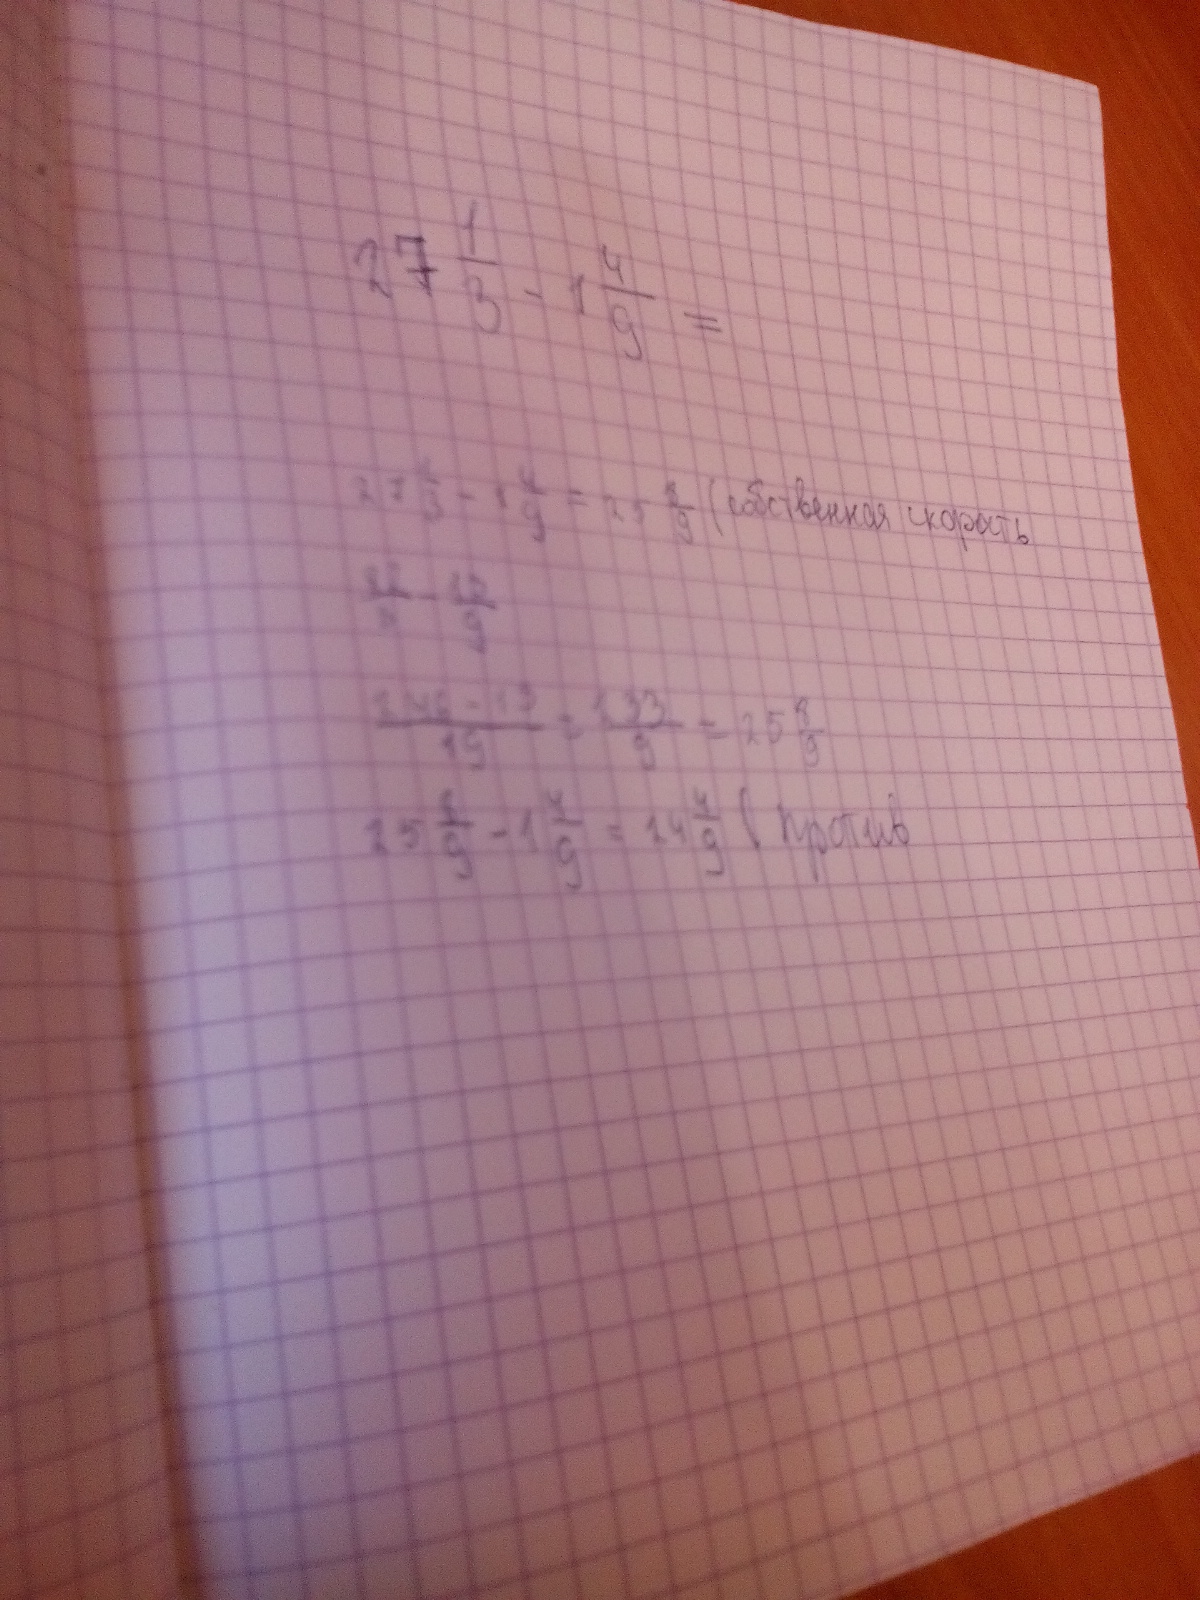 27 1/3 - 1 4/9 =
27 1/3 - 1 4/9 = 25 8/9 (собственная скорость
82/3 - 13/9
246 - 13/9 = 233/9 = 25 8/9
25 8/9 - 1 4/9 = 24 4/9 ( против